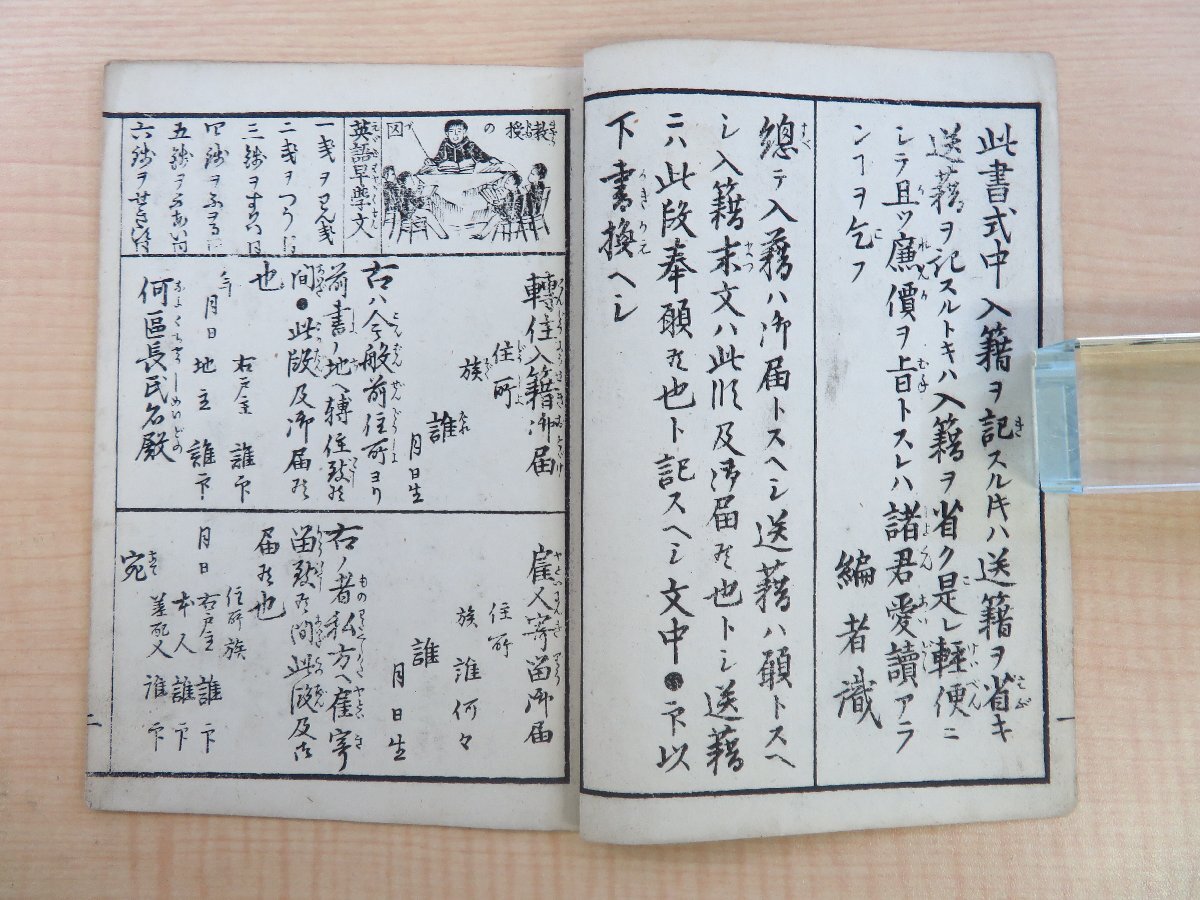 此書式中入籍ヲ記スル片ハ送籍ヲ省キ
送籍ヲ記スルトキハ入籍ヲ省ク是レ輕便ニ
シテ且ツ廉價ヲ旨トスレハ諸君愛讀アラ
ンヿヲ乞フ
編者識
總テ入籍ハ御届トスヘシ送籍ハ願トスヘ
シ入籍末文ハ此段及御届候也トシ送籍
ニハ此段奉願候也ト記スヘシ文中●印以
下書換ヘシ
一
教授の図
英語早学文
一銭ヲ
二銭ヲ
三銭ヲ
四銭ヲ
五銭ヲ
六銭ヲ
轉住入籍御届
住所
族
誰
月日生
右ハ今般前住所ヨリ
前書ノ地ヘ轉住致候
間●此段及御届候
也
年月日
右戸主 誰印
地主 誰印
何區長氏名殿
雇人寄留御届
住所
族 誰何々
誰
月日生
右ノ者私方ヘ雇寄
留致候間此段及御
届候也
住所族
月日右戸主誰印
本人 誰印
差配人 誰印
宛
二